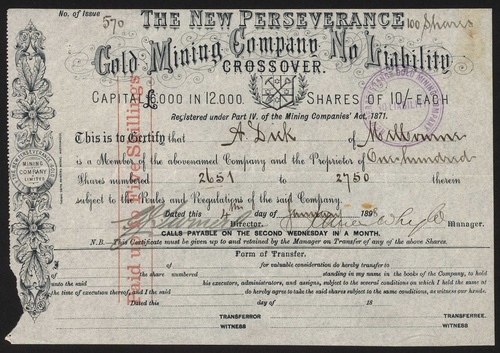 No. of Issue 570
THE NEW PERSEVERANCE
100 Shares
Gold Mining Company No Liability
CROSSOVER.
CAPITAL £6000 IN 12.000. SHARES OF 10/- EACH
Registered under Part IV. of the Mining Companies' Act, 1871.
This is to Certify that A. Dick of Melbourne
is a Member of the abovenamed Company and the Proprietor of One hundred
Shares numbered 2651 to 2750 therein
subject to the Rules and Regulations of the said Company.
Dated this 4th day of January 1898
Director. Manager.
CALLS PAYABLE ON THE SECOND WEDNESDAY IN A MONTH.
N.B.—This Certificate must be given up to and retained by the Manager on Transfer of any of the above Shares.
Form of Transfer.
for valuable consideration do hereby transfer to
the share numbered standing in my name in the books of the Company, to hold
unto the said his executors, administrators, and assigns, subject to the several conditions on which I held the same at
the time of execution thereof, and I the said do hereby agree to take the said shares subject to the same conditions, as witness our hands.
Dated this day of 18
TRANSFERROR. TRANSFERREE.
WITNESS WITNESS
Paid up to Five Shillings
MINING
COMPANY
LIMITED